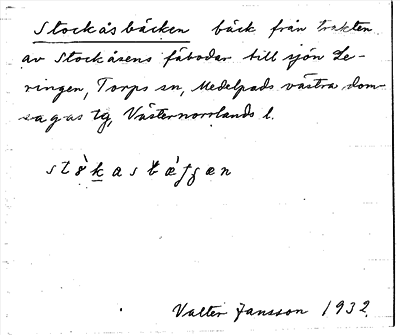 Stockåsbäcken bäck från trakten
av Stockåsens fäbodar till sjön Le-
ringen, Torps sn, Medelpads västra dom-
sagas tg, Västernorrlands l.
Valter Jansson 1932.